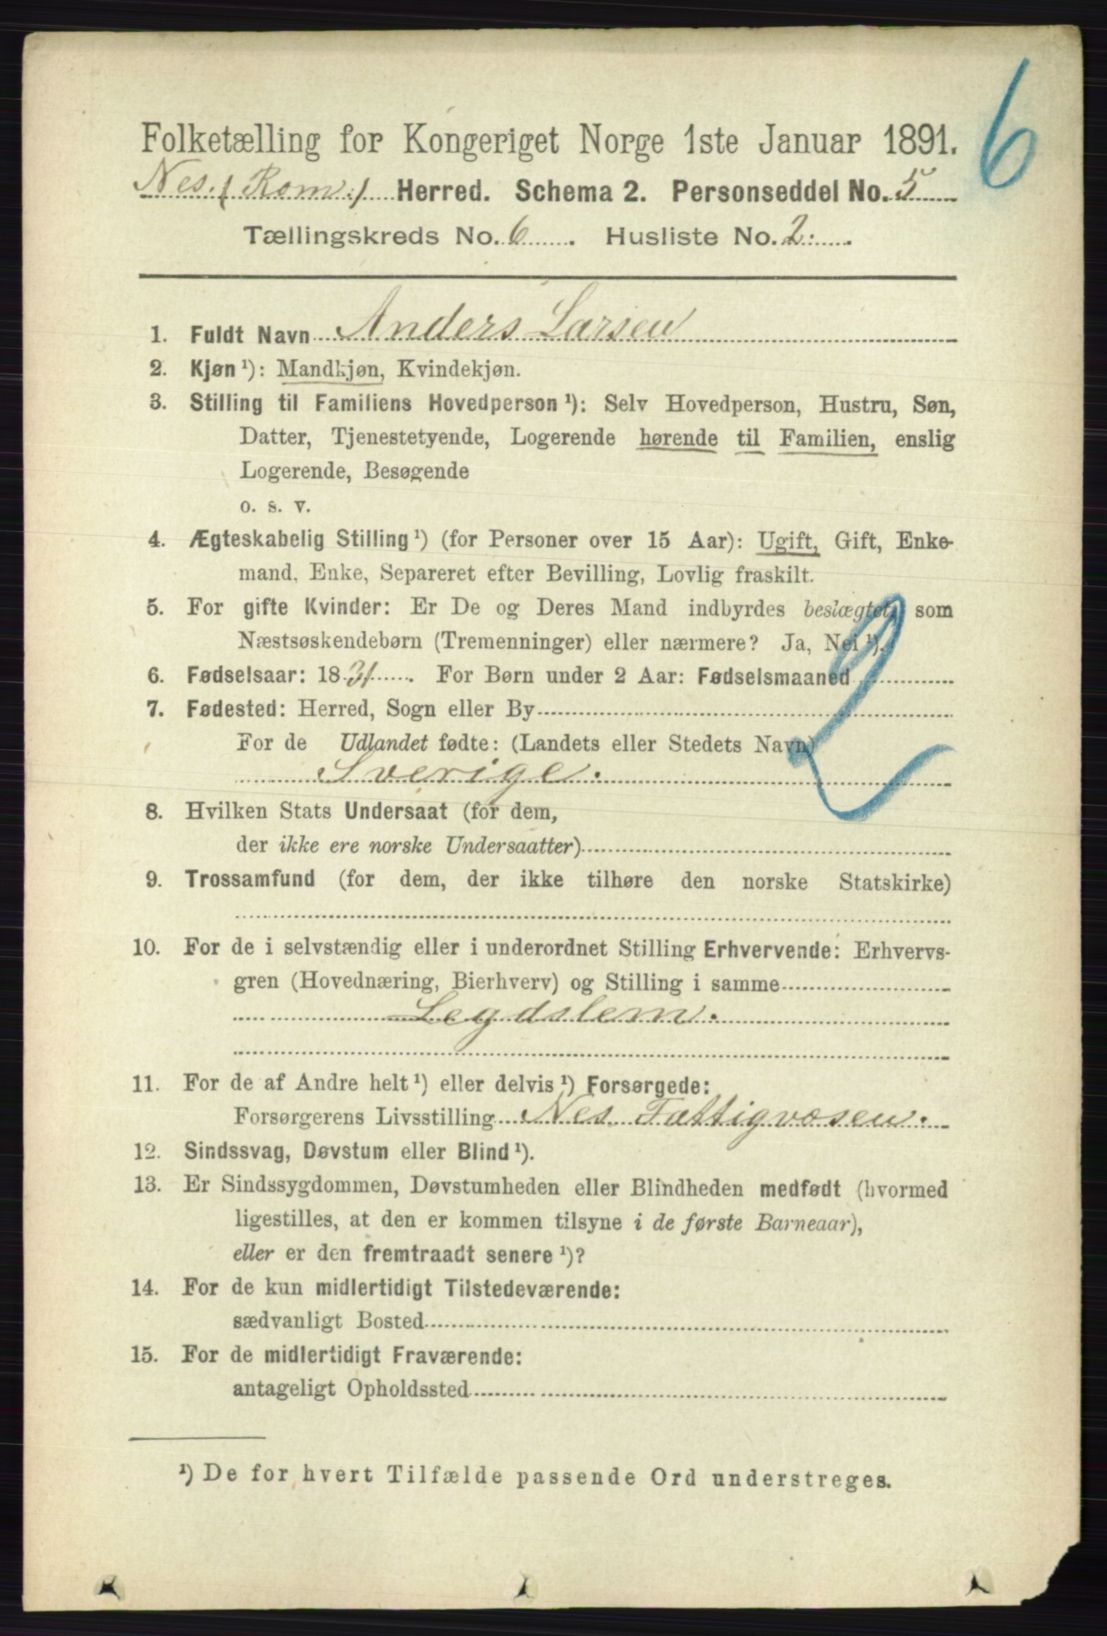 6
Folketælling for Kongeriget Norge 1ste Januar 1891.
Nes. (Rom.) Herred. Schema 2. Personseddel No. 5
Tællingskreds No. 6. Husliste No. 2.
1. Fuldt Navn Anders Larsen
2. Kjøn ¹): Mandkjøn, Kvindekjøn.
3. Stilling til Familiens Hovedperson ¹): Selv Hovedperson, Hustru, Søn,
Datter, Tjenestetyende, Logerende hørende til Familien, enslig
Logerende, Besøgende
o. s. v.
4. Ægteskabelig Stilling ¹) (for Personer over 15 Aar): Ugift, Gift, Enke-
mand, Enke, Separeret efter Bevilling, Lovlig fraskilt.
5. For gifte Kvinder: Er De og Deres Mand indbyrdes beslægtet, som
Næstsøskendebørn (Tremenninger) eller nærmere? Ja, Nei ¹).
6. Fødselsaar: 1831. For Børn under 2 Aar: Fødselsmaaned
7. Fødested: Herred, Sogn eller By
For de Udlandet fødte: (Landets eller Stedets Navn)
Sverige.
2
8. Hvilken Stats Undersaat (for dem,
der ikke ere norske Undersaatter)
9. Trossamfund (for dem, der ikke tilhøre den norske Statskirke)
10. For de i selvstændig eller i underordnet Stilling Erhvervende: Erhvervs-
gren (Hovednæring, Bierhverv) og Stilling i samme
Legdslem.
11. For de af Andre helt ¹) eller delvis ¹) Forsørgede:
Forsørgerens Livsstilling Nes Fattigvæsen.
12. Sindssvag, Døvstum eller Blind ¹).
13. Er Sindssygdommen, Døvstumheden eller Blindheden medfødt (hvormed
ligestilles, at den er kommen tilsyne i de første Barneaar),
eller er den fremtraadt senere ¹)?
14. For de kun midlertidigt Tilstedeværende:
sædvanligt Bosted
15. For de midlertidigt Fraværende:
antageligt Opholdssted
¹) De for hvert Tilfælde passende Ord understreges.